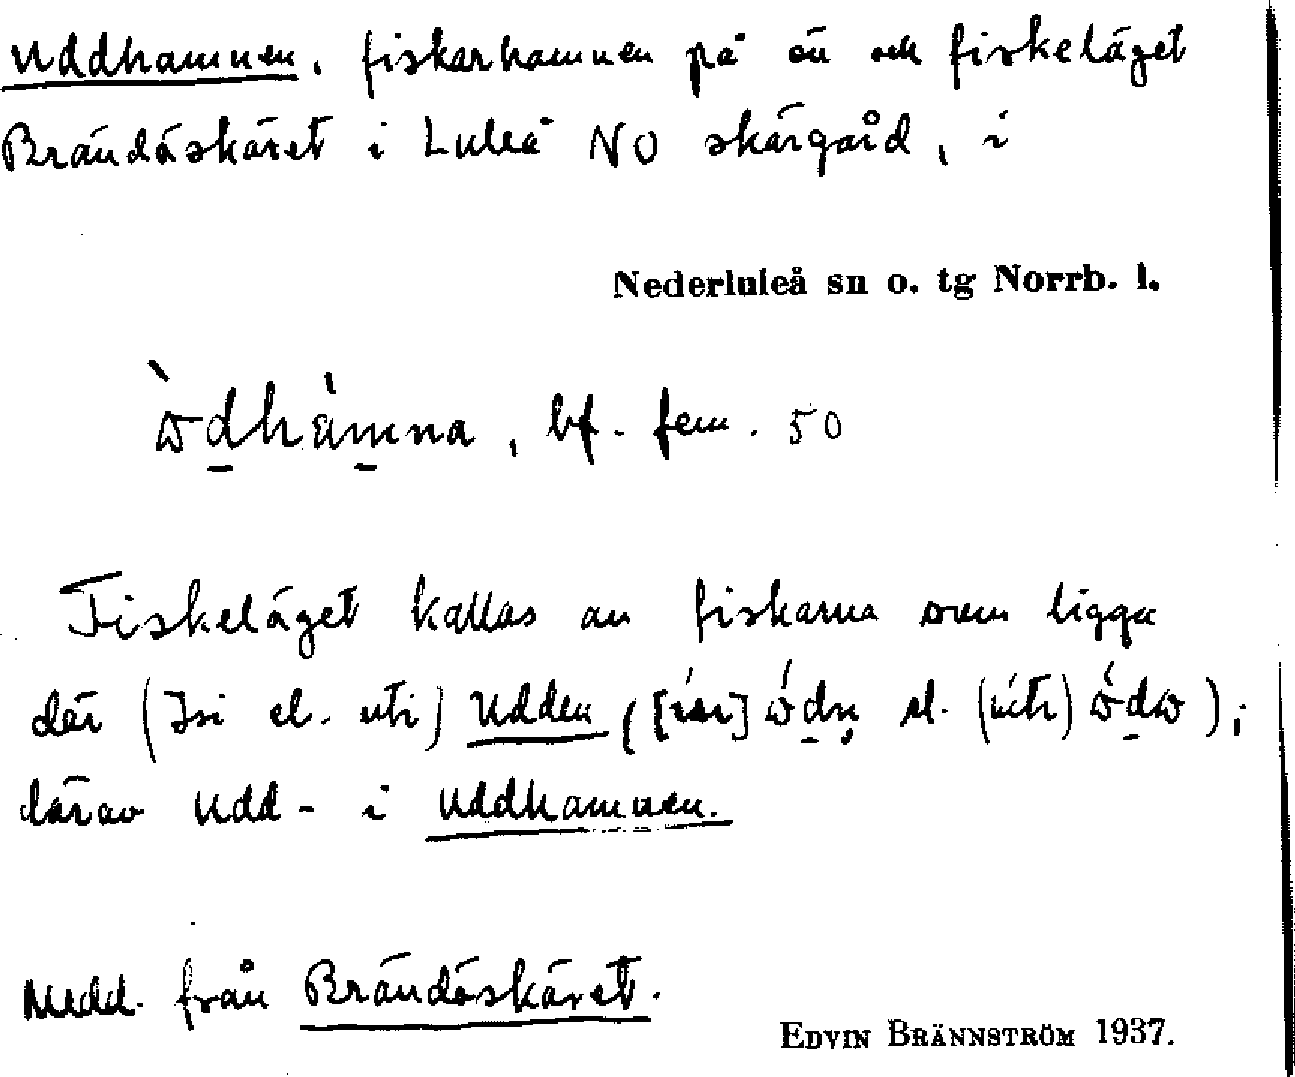 Uddhamnen, fiskarhamnen på ön och fiskeläget
Brändöskäret i Luleå NO skärgård, i
Nederluleå sn o. tg Norrb. l.
òdhàmna, bf. fem. 50
Fiskeläget kallas av fiskarna som ligga
där ( el. uti) Udden ( el. (úti) ); 
därav Udd- i Uddhamnen.
Medd. från Brändöskäret.
EDVIN BRÄNNSTRÖM 1937.